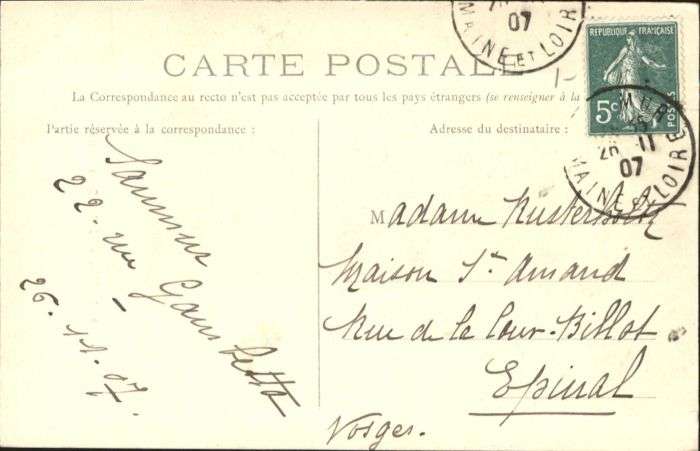 MAINE ET LOIRE
07
CARTE POSTALE
La Correspondance au recto n'est pas acceptée par tous les pays étrangers (se renseigner à la
Partie réservée à la correspondance :
Adresse du destinataire :
RÉPUBLIQUE FRANÇAISE
5c
POSTES
26 11
07
MAINE ET LOIRE
Saumur
22. rue Gambetta
26. 11. 07.
Madame
Maison St Amand
Rue de la Cour-Billot
Epinal
Vosges.